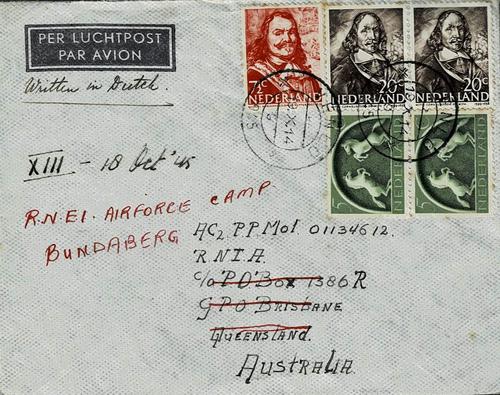 PER LUCHTPOST
PAR AVION
Written in Dutch.
7½c
NEDERLAND
20c
NEDERLAND
20c
NEDERLAND
5c
NEDERLAND
5c
NEDERLAND
XIII - 10 Oct '45
R.N.E.I. AIRFORCE CAMP
BUNDABERG
AC2 P.P. Mol. 01134612.
R N I A.
c/o P O Box 1386R
G P O BRISBANE
QUEENSLAND.
AUSTRALIA.